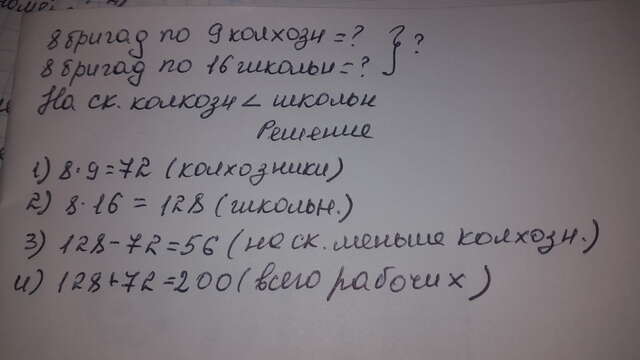 8 бригад по 9 колхозн = ? } ?
8 бригад по 16 школьн = ?
На ск. колхозн < школьн
Решение
1) 8·9=72 (колхозники)
2) 8·16 = 128 (школьн.)
3) 128-72=56 (на ск. меньше колхозн.)
4) 128+72=200 (всего рабочих)